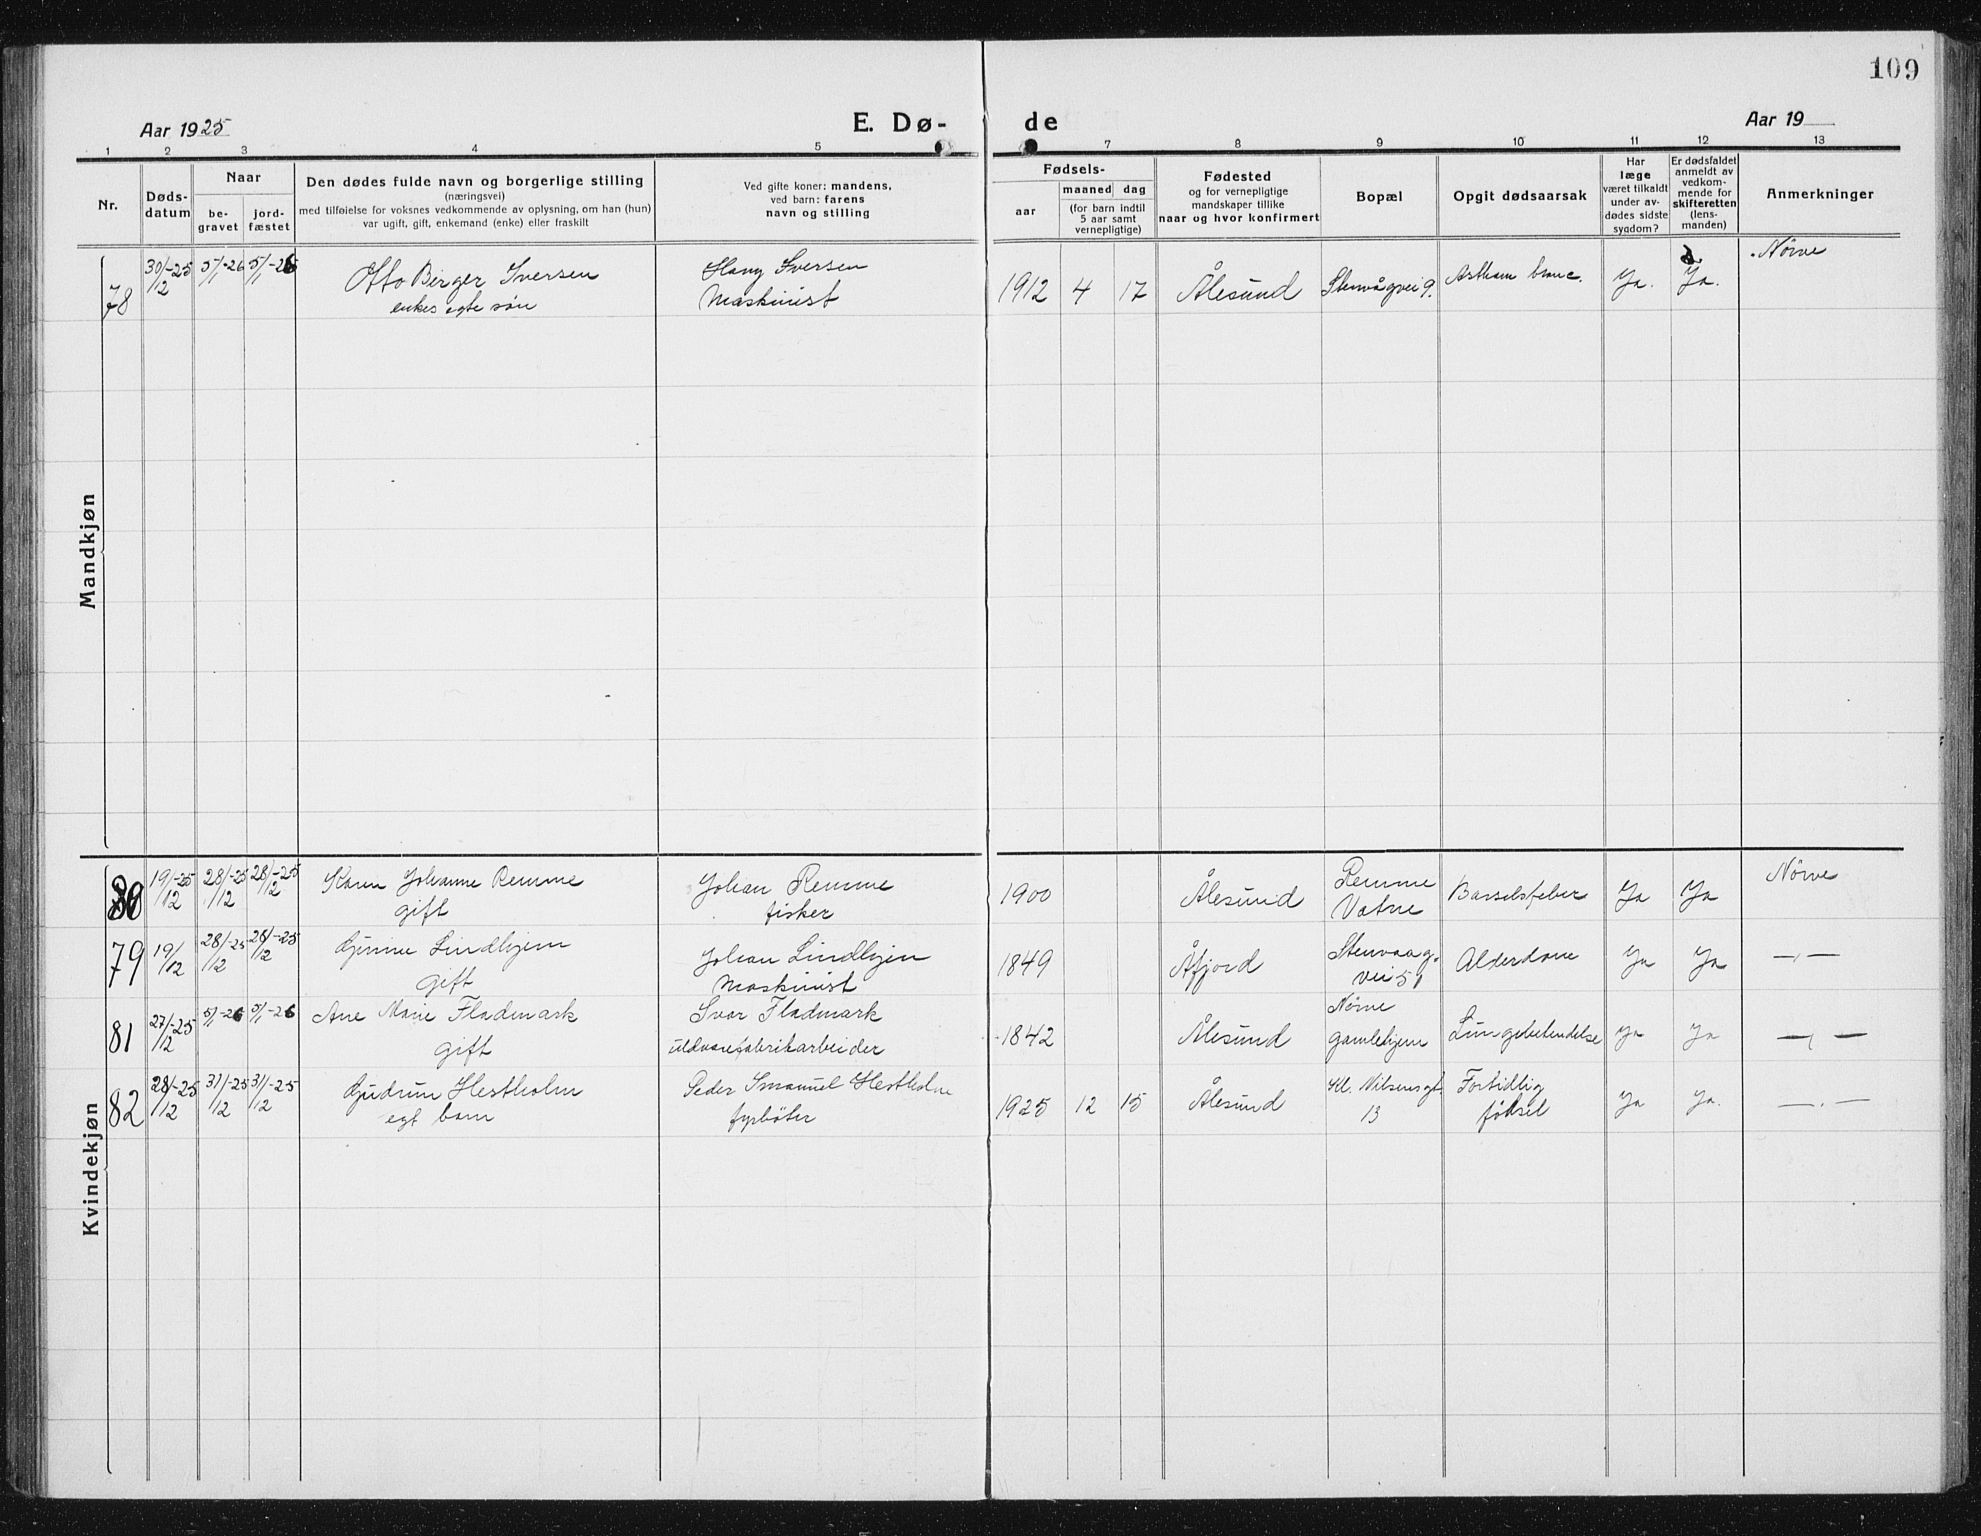 109
Aar 1925
E. Dø-
de
Aar 19
1 2 3 4 5 7 8 9 10 11 12 13
Nr.
Døds-
datum
Naar
be-
gravet
jord-
fæstet
Den dødes fulde navn og borgerlige stilling
(næringsvei)
med tilføielse for voksnes vedkommende av oplysning, om han (hun)
var ugift, gift, enkemand (enke) eller fraskilt
Ved gifte koner: mandens,
ved barn: farens
navn og stilling
Fødsels-
aar
maaned dag
(for barn indtil
5 aar samt
vernepligtige)
Fødested
og for vernepligtige
mandskaper tillike
naar og hvor konfirmert
Bopæl
Opgit dødsaarsak
Har
læge
været tilkaldt
under av-
dødes sidste
sygdom?
Er dødsfaldet
anmeldt av
vedkom-
mende for
skifteretten
(lens-
manden)
Anmerkninger
Mandkjøn
78 30/12-25 5/1-26 5/1-26 Otto Birger Iversen
enkes egte søn
Iversen
Maskinist
1912 4 17 Ålesund Stenvågvei 9. Ja. Ja. Nörve
Kvindekjøn
80 19/12-25 28/12-25 28/12-25 Karen Johanne Remme
gift
Johan Remme
fisker
1900 Ålesund Remme
Vatne
Barselsfeber Ja Ja Nörve
79 19/12 28/12-25 28/12-25 Lindhjem
gift
Johan Lindhjem
Maskinist
1849 Åfjord Stenvaag.
vei 51
Ja Ja —,,—
81 27/12-25 5/1-26 5/1-26 Ane Marie Fladmark
gift
Ivar Fladmark
uldvarefabrikarbeider
1842 Ålesund Nörve
gamlehjem
Lungebetendelse Ja Ja —,,—
82 28/12-25 31/12-25 31/12-25 Gudrun Hestholm
egt barn
Peder Emanuel Hestholm
fyrbøter
1925 12 15 Ålesund Kl. Nilsens gt.
13
Fortidlig
födsel
Ja Ja. —,,—